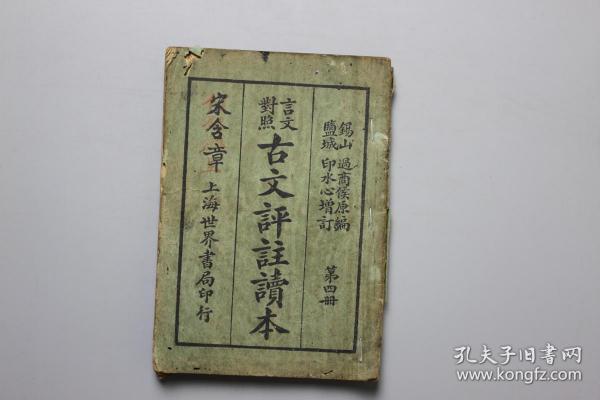 錫山 過商侯原編
鹽城 印水心增訂
第四冊
言文
對照
古文評註讀本
宋含章
上海世界書局印行
孔夫子旧书网
www.kongfz.com